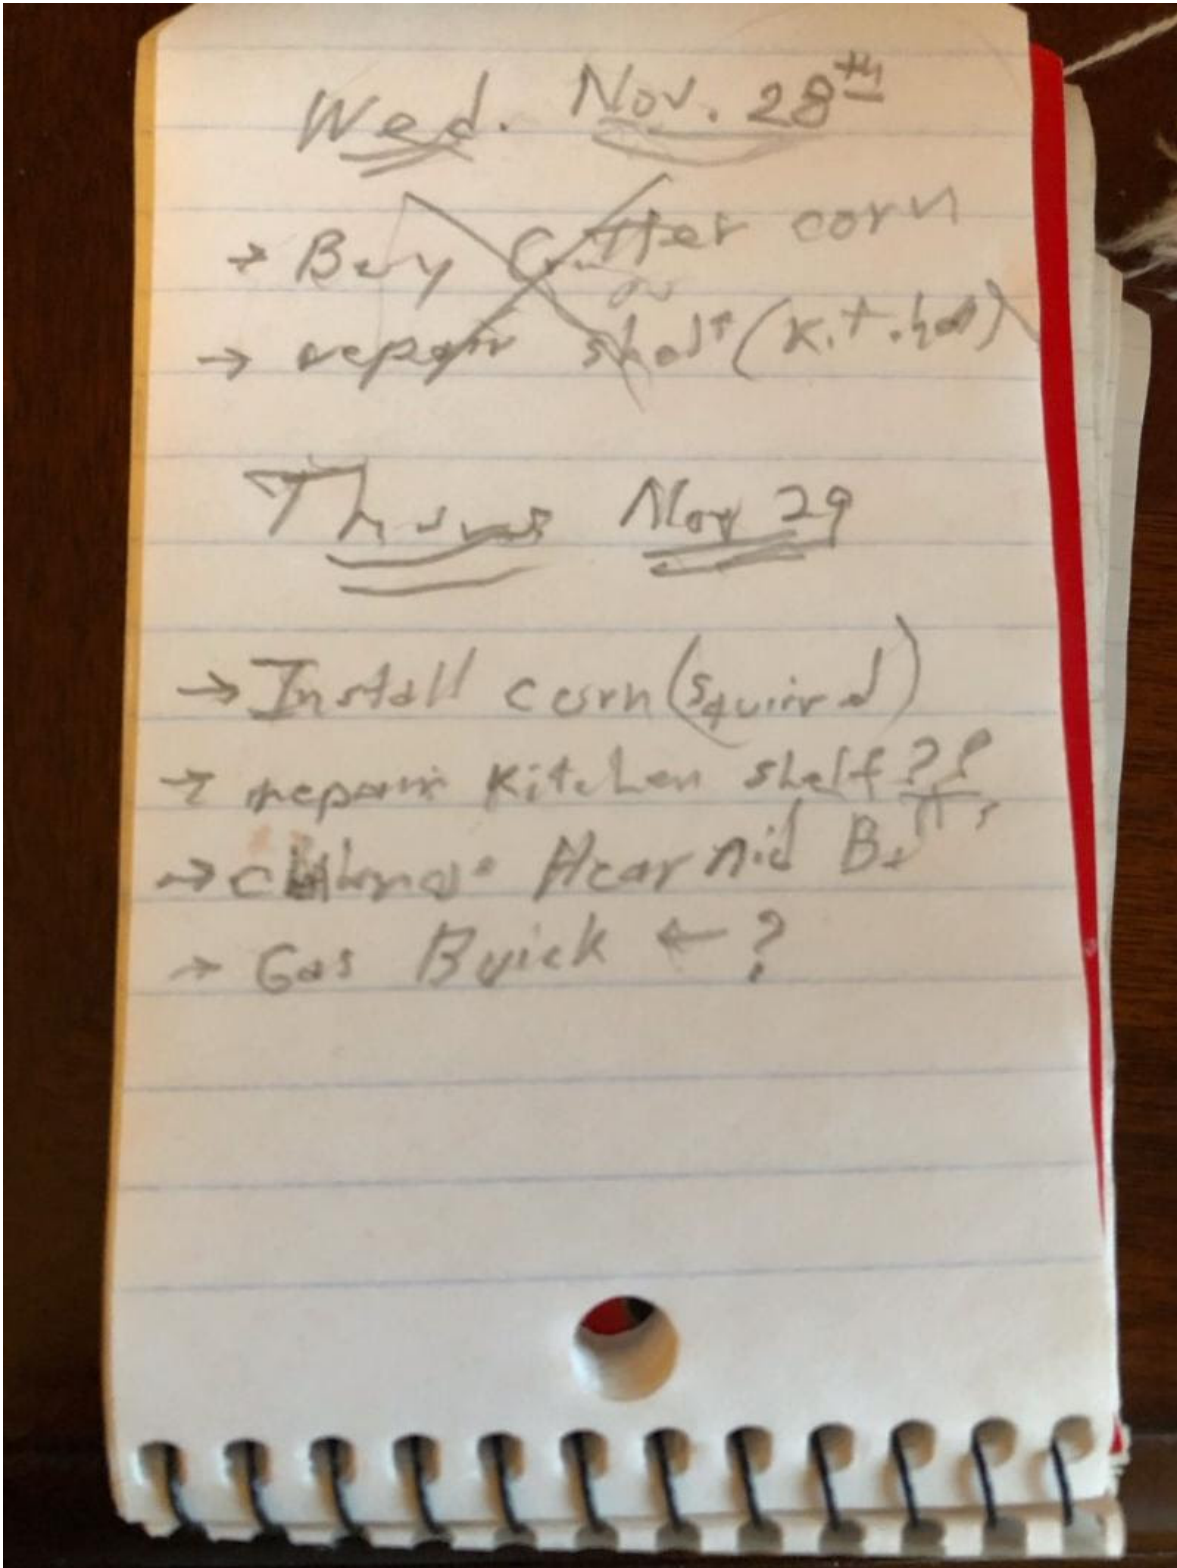 Wed. Nov. 28th
→ Buy Critter corn
→ repair shelf (Kitchen)
Thurs Nov 29
→ Install corn (squirrel)
→ repair Kitchen shelf ??
→ Hear Aid Batt
→ Gas Buick ← ?